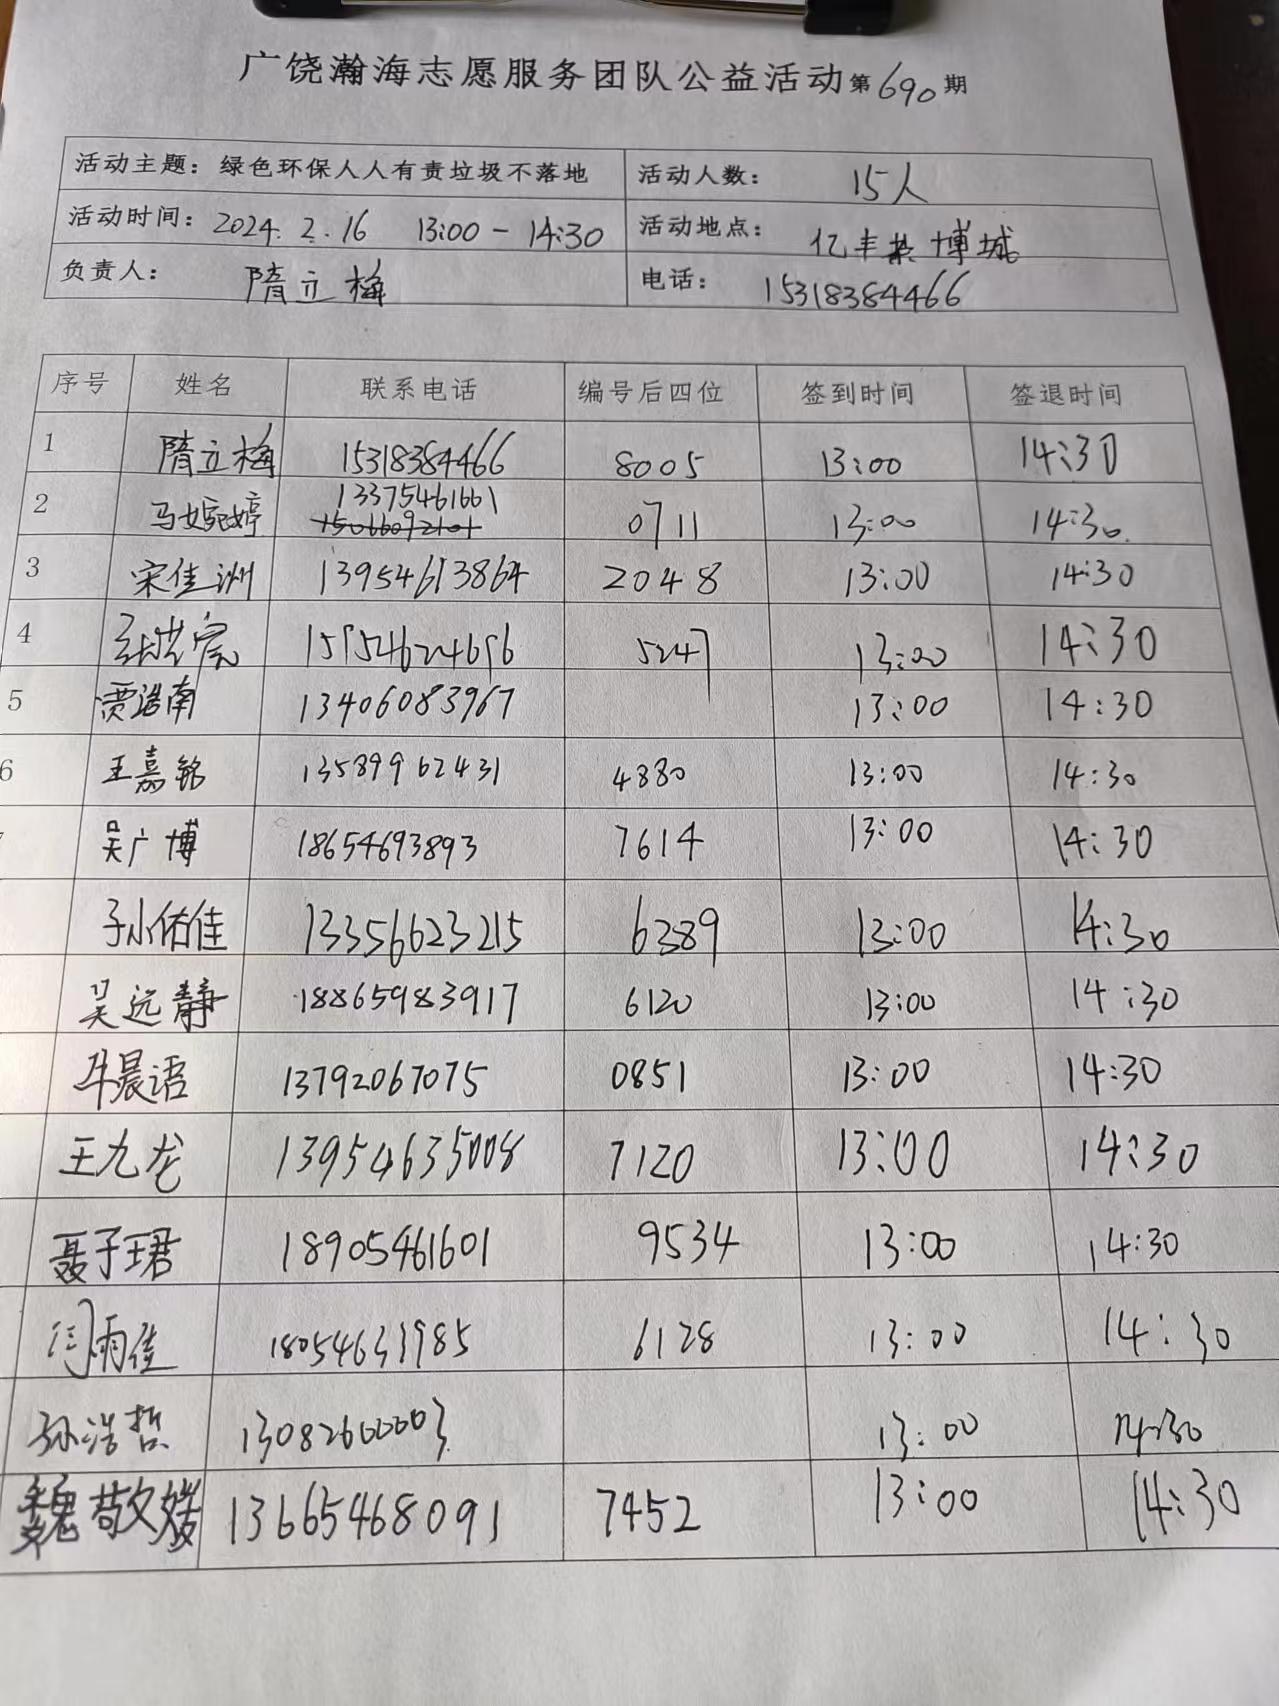 广饶瀚海志愿服务团队公益活动第690期
活动主题：绿色环保人人有责垃圾不落地 活动人数： 15人
活动时间：2024.2.16 13:00-14:30 活动地点： 亿丰 博城
负责人： 隋立梅 电话： 15318384466
序号 姓名 联系电话 编号后四位 签到时间 签退时间
1 隋立梅 15318384466 8005 13:00 14:30
2 马婉婷 13375461661 0711 13:00 14:30
15066092101
3 宋佳洲 13954613864 2048 13:00 14:30
4 15154624616 5247 13:00 14:30
5 贾浩南 13406083967 13:00 14:30
6 王嘉铭 13589962431 4880 13:00 14:30
吴广博 18654693893 7614 13:00 14:30
孙佑佳 13356623215 6389 13:00 14:30
吴远静 18865983917 6120 13:00 14:30
牟晨语 13792067075 0851 13:00 14:30
王九龙 13954635008 7120 13:00 14:30
聂子珺 18905461601 9534 13:00 14:30
闫雨佳 18054631985 6128 13:00 14:30
孙浩哲 13082600003 13:00 14:30
魏敬媛 13665468091 7452 13:00 14:30